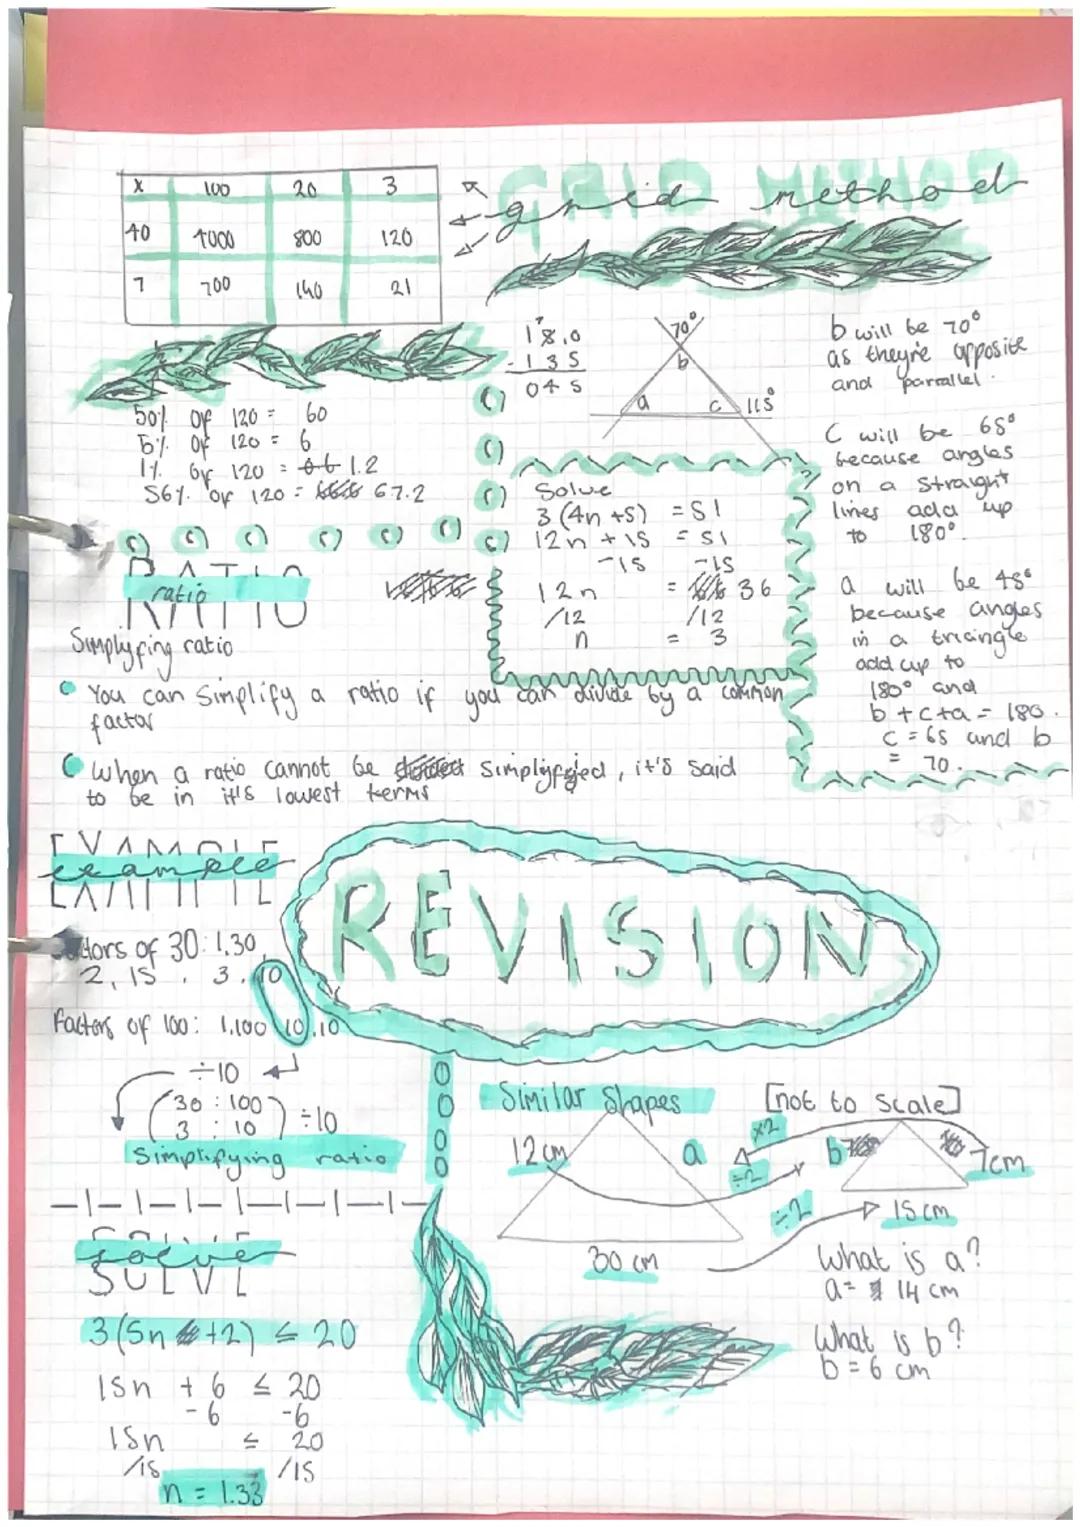 grid method
GRID METHOD
x 100 20 3
40 4000 800 120
7 700 140 21
50% of 120 = 60
5% of 120 = 6
1% of 120 = 1.2
56% of 120 = 67.2
18.0
- 135
045
70°
b
a c 115°
b will be 70°
as they're opposite
and parrallel.
C will be 65°
because angles
on a straight
lines add up
to 180°.
a will be 45°
because angles
in a triangle
add up to
180° and
b + c + a = 180.
c = 65 and b
= 70.
Solve
3 (4n + 5) = 51
12n + 15 = 51
-15 -15
12n = 36
/12 /12
n = 3
RATIO
ratio
Simplyfing ratio
You can Simplify a ratio if you can divide by a common
factor
When a ratio cannot be Simplyfied, it's said
to be in it's lowest terms
EXAMPLE
example
Factors of 30: 1,30,
2, 15, 3, 10
Factors of 100: 1,100, 10, 10
÷10
30 : 100
3 : 10
÷10
Simplifying ratio
REVISION
SOLVE
solve
3(5n +2) ≤ 20
15n + 6 ≤ 20
-6 -6
15n ≤ 20
/15 /15
n = 1.33
Similar Shapes [not to scale]
12cm a x2 ÷2 b 7cm
÷2 15cm
30 cm
What is a?
a = 14 cm
What is b?
b = 6 cm